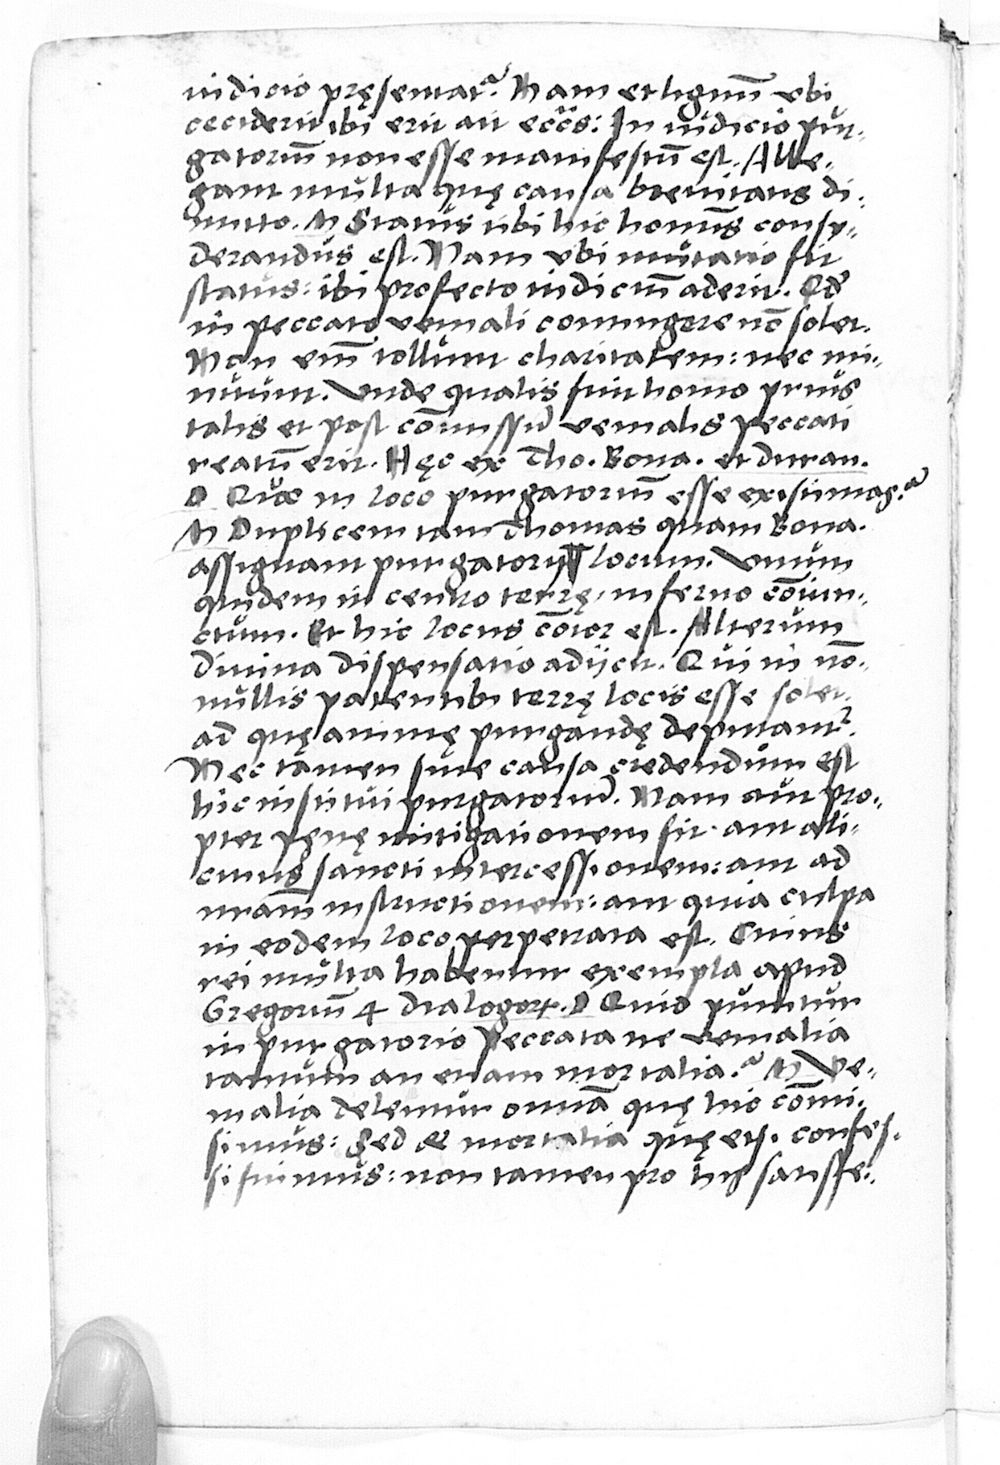 iudicio pręsentat᷑. Nam et lignū ubi
ceciderit ibi erit ait ecc̄s: In iudicio pur-
gatoriū non esse manifestū est. Alle-
gant multa quę causa breuitatis di-
mitto. M Status tibi hic hominis consy-
derandus est. Nam ubi mutatio fit
status: ibi profecto iudiciū aderit. Qđ
in peccato veniali contingere nō solet.
Non em̄ tollunt charitatem: nec mi-
nuunt. Unde qualis fuit homo prius
talis et post cōmissū venialis peccati
reatū erit. Hęc ex Tho. Bona. et duran.
D Quo in loco purgatoriū esse existimas?
M Duplicem tam Thomas quam Bona.
assignant purgatorij locum. Unum
quidem in centro terrę, inferno cōiun-
ctum. Et hic locus cōior est. Alterum
diuina dispensatio adijcit. Qui in nō-
nullis patentibi terrę locis esse solet.
ad quę animę purgandę deputant᷑.
Nec tamen sine causa credendum est
hic institui purgatoriū. Nam aut pro-
pter pęnę mitigationem fit. aut ali-
cuius sancti intercessionem: aut ad
nr̄am instructionem: aut quia culpa
in eodem loco perpetrata est. Cuius
rei multa habentur exempla apud
Gregoriū 4 dialogoꝝ. D Quid punitur
in purgatorio peccata ne venialia
tantum an etiam mortalia? M Ve-
nialia delentur omnia quę hic cōmi-
simus: Sed & mortalia quę etsi confes-
si fuimus: non tamen pro his satisfe-